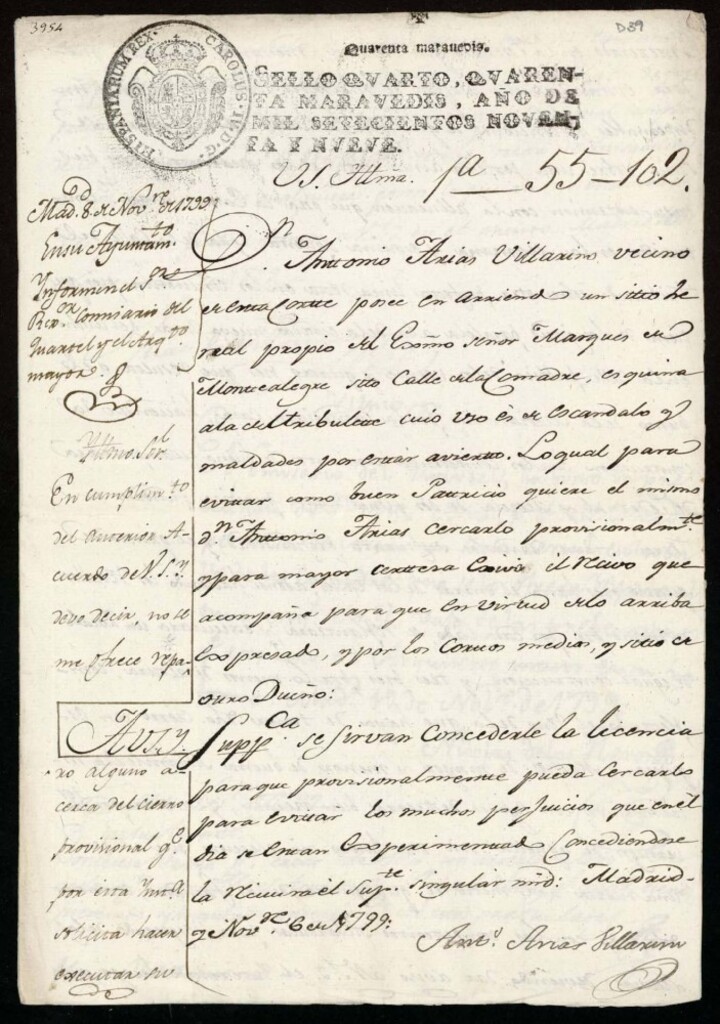 3954
D39
Quarenta marauedis.
HISPANIARUM REX. CAROLUS. IV. D. G.
SELLO QVARTO, QVAREN-
TA MARAVEDIS, AÑO DE
MIL SETECIENTOS NOVEN-
TA Y NVEVE.
1ª 55-102.
Mad.d 8 de Nov.re de 1799
En su Ayuntam.to
Informen el S.or
Rex.or Comisario del
quartel y el Arq.to
mayor.
Yltmo. Sor.
En cumplim.to
del anterior A-
cuerdo de V.S.Y.
devo decir, no se
me ofrece repa-
A V.S.Y.
ro alguno a-
cerca del cierro
provisional q.e
por esta
solicita hacer
executar su
D.n Anttonio Arias Villarino vecino
de esta Cortte posee en arriendo un sitio he
real propio del Exmo señor Marques de
Montealegre sito Calle de la Comadre, esquina
a la del tribulete cuio uso es de escandalo y
maldades por estar avierto. Lo qual para
evittar como buen Patricio quiere el mismo
d.n Anttonio Arias cercarlo provisionalm.te
y para mayor certteza
acompaña para que en virttud de lo arriba
Expresado, y por los cortos medios, y sitio de
ottro Dueño:
Supp.ca se sirvan concederle la licencia
para que provisionalmente pueda cercarlo
para evittar los muchos perjuicios que en el
dia se estan Experimentando Concediendose
la el Sup.te singular mrd: Madrid
y Nov.re 6 de 1799:
Ant.o Arias Villarino